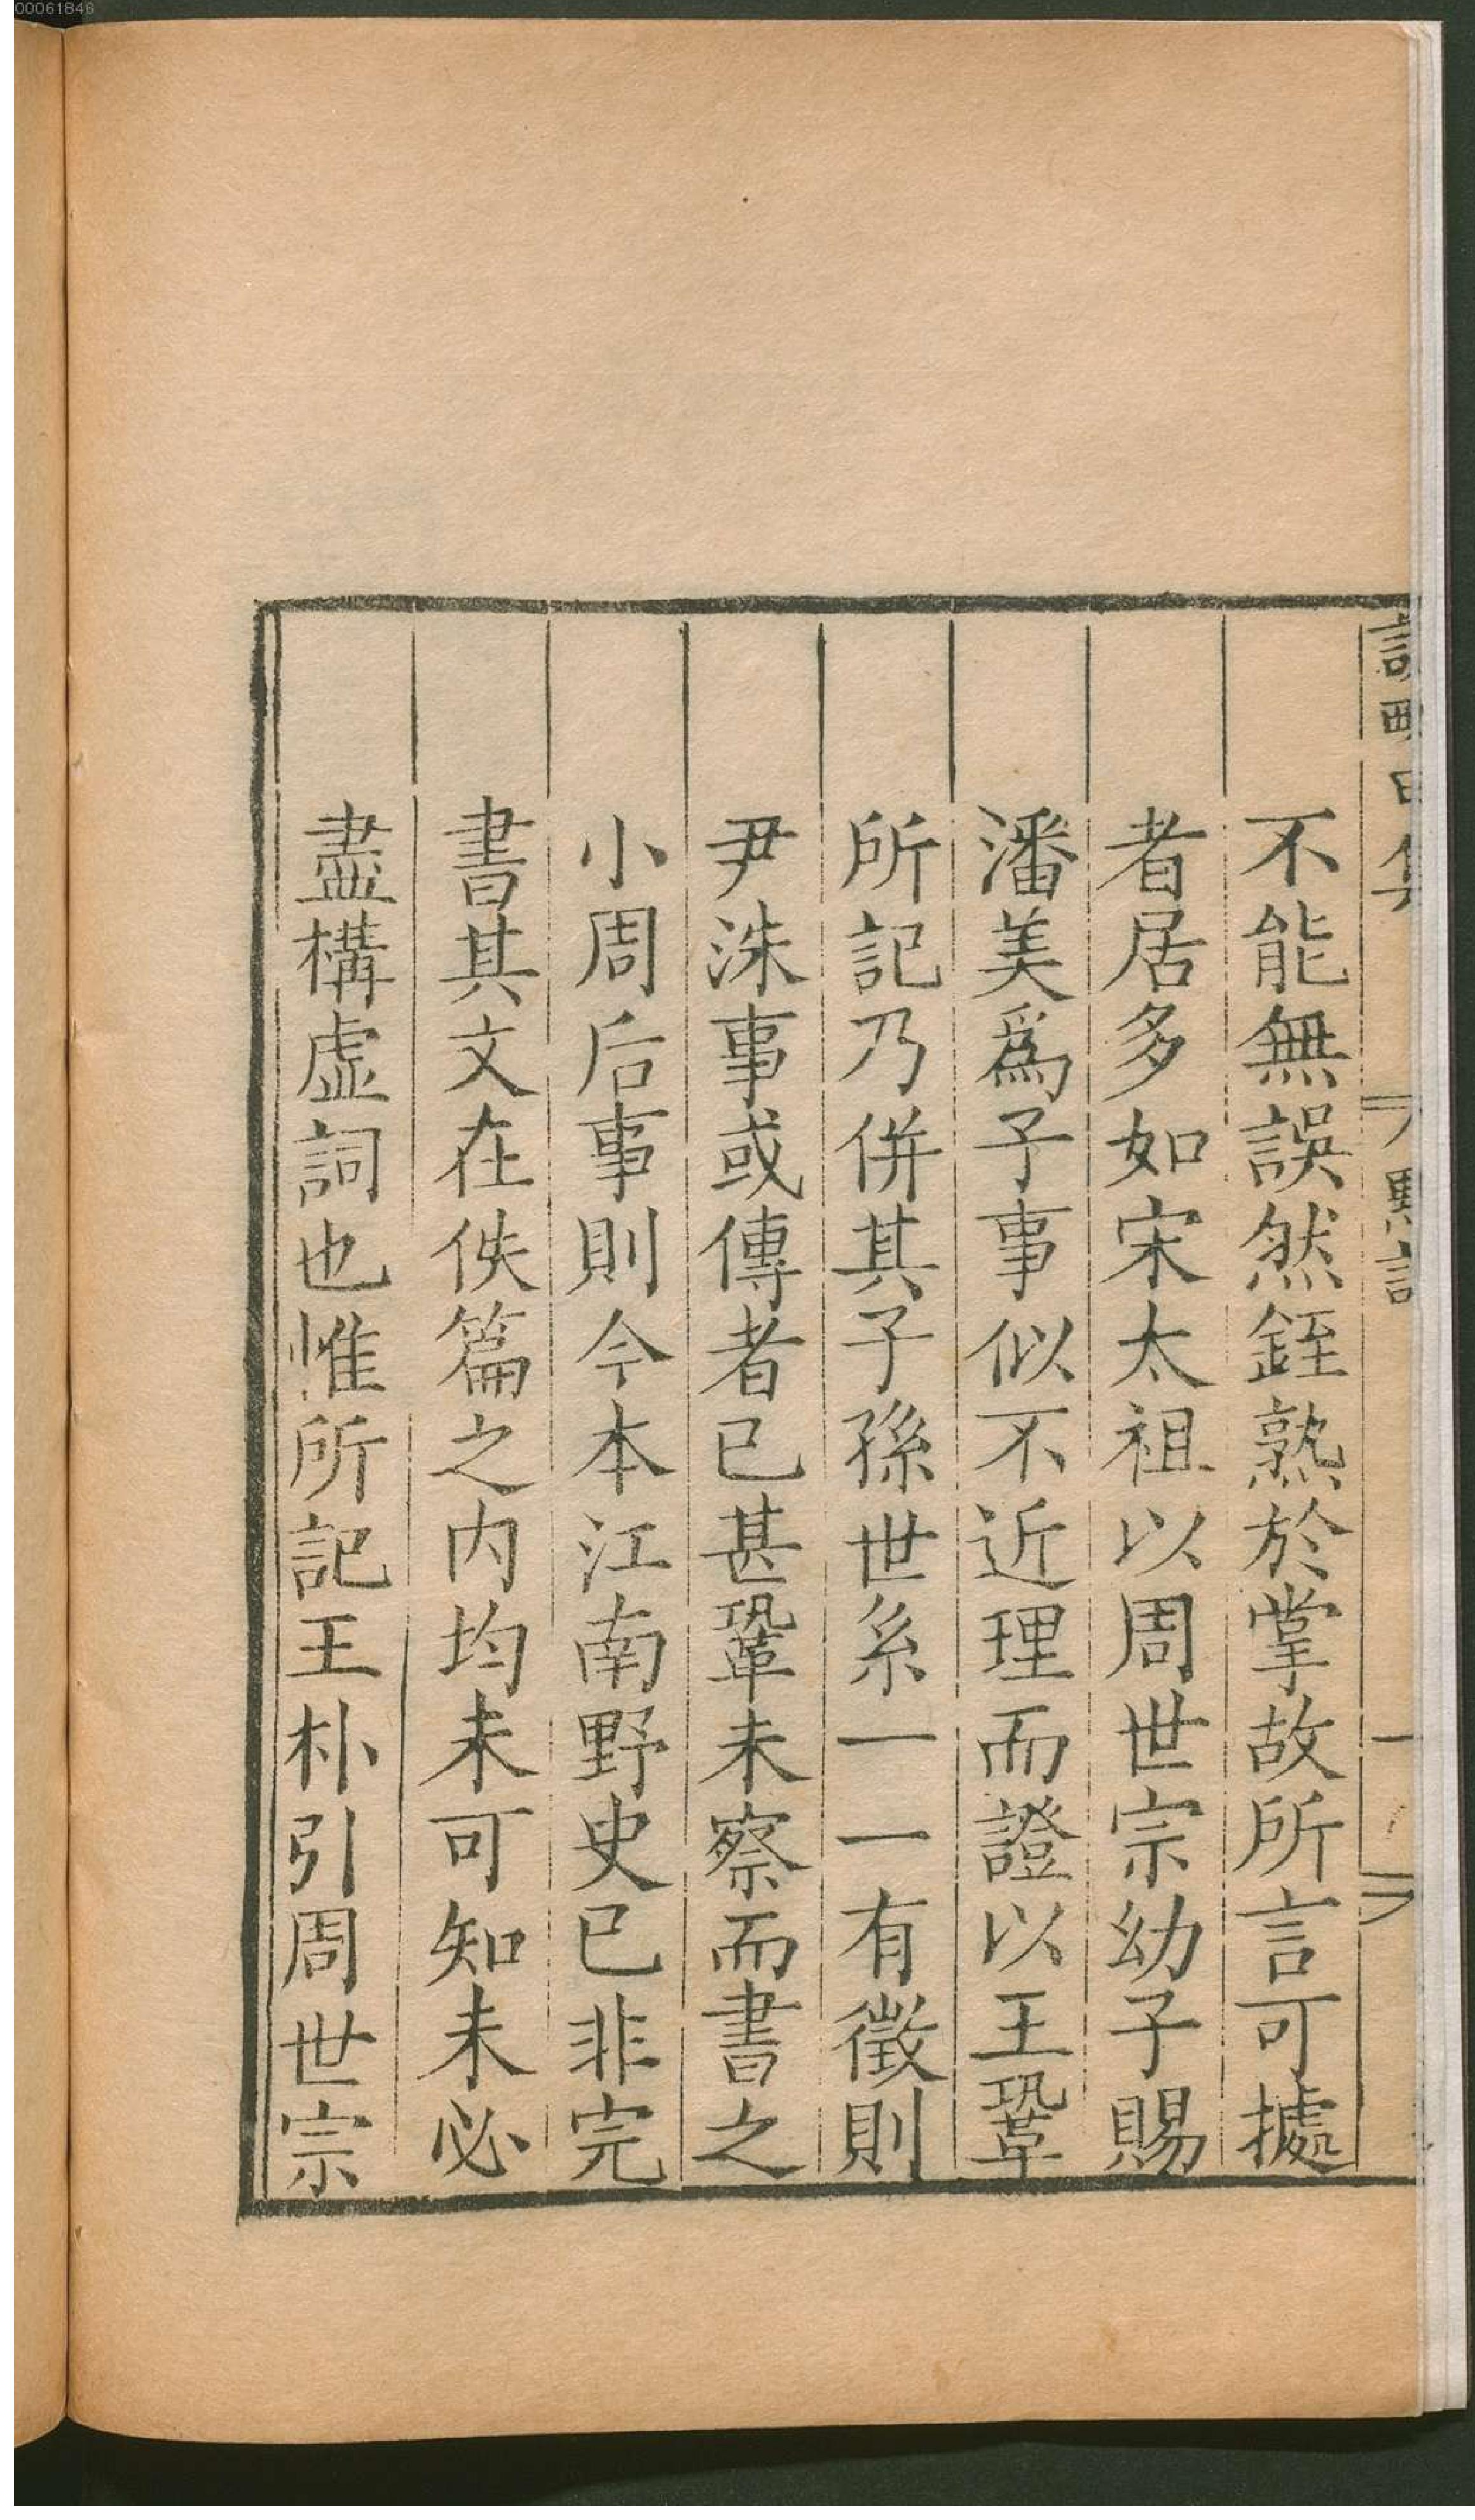 不能無誤然銍熟於掌故所言可據
者居多如宋太祖以周世宗幼子賜
潘美爲子事似不近理而證以王鞏
所記乃併其子孫世系一一有徵則
尹洙事或傳者已甚鞏未察而書之
小周后事則今本江南野史已非完
書其文在佚篇之內均未可知未必
盡構虛詞也惟所記王朴引周世宗
00061846